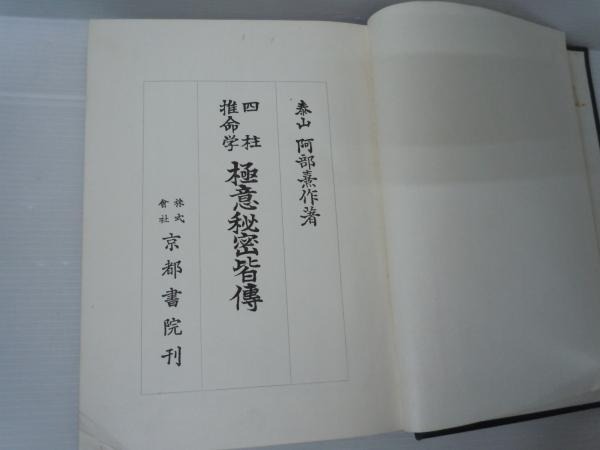 泰山 阿部熹作著
四柱
推命学
極意秘密皆傳
株式
會社
京都書院刊